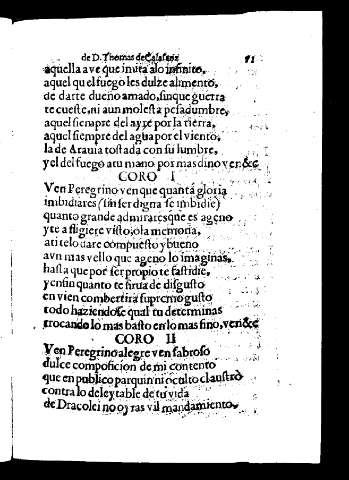 de D. Thomas de Calasanz 91
aquella ave que imita alo infinito,
aquel qu el fuego les dulze alimento,
de darte dueño amado, sin que guerra
te cueste, ni aun molesta pesadumbre,
aquel siempre del ayre por la tierra,
aquel siempre del agua por el viento,
la de Aravia tostada con su lumbre,
y el del fuego a tu mano por mas dino ven &c
CORO I
Ven Peregrino ven que quanta gloria
imbidiares (sin ser digna se imbidie)
quanto grande admirares que es ageno
y te afligiere visto, o la memoria,
a ti te lo dare compuesto y bueno
avn mas vello que ageno lo imaginas,
hasta que por ser propio te fastidie,
y en fin quanto te sirua de disgusto
en vien combertira supremo gusto
todo haziendose qual tu determinas
trocando lo mas basto en lo mas fino, ven &c
CORO II
Ven Peregrino alegre ven sabroso
dulce composicion de mi contento
que en publico parquin ni oculto claustro
contra lo de ley table de tu vida
de Dracole i no oyras vil mandamiento,